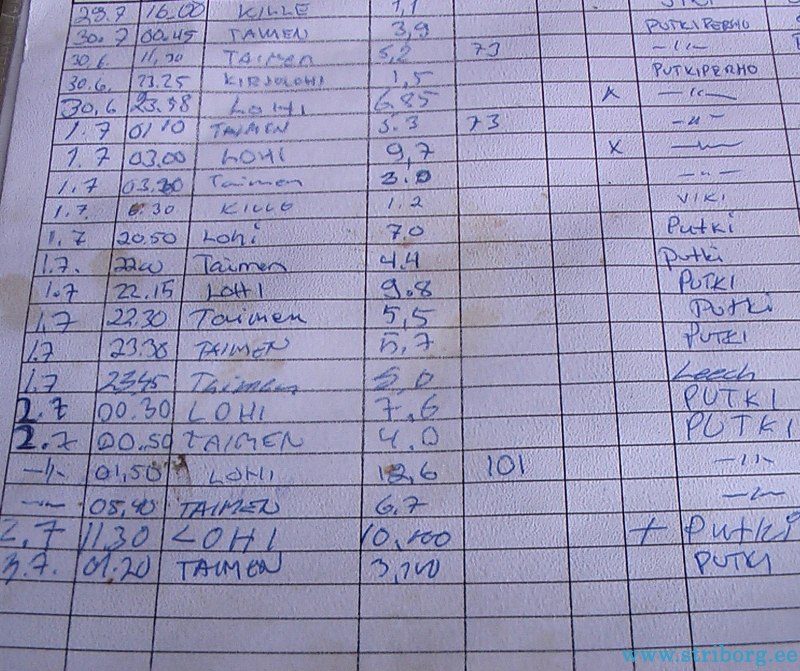 29.7 16.00 KILLE 1,1
30.7 00.45 TAIMEN 3,9 PUTKIPERHO
30.6 11,30 TAIMEN 5,2 73 -"-
30.6. 23.25 KIRJOLOHI 1,5 PUTKIPERHO
30.6 23.58 LOHI 6.85 x -"-
1.7 01 10 TAIMEN 5.3 73 -"-
1.7 03.00 LOHI 9,7 x -"-
1.7 03.30 Taimen 3.0 -"-
1.7. 30 1.2 VIKI
1.7 20.50 Lohi 7.0 Putki
1.7. Taimen 4.4 Putki
1.7 22.15 LOHI 9.8 PUTKI
1.7 22.30 Taimen 5,5 Putki
1.7 23.30 TAIMEN 5,7 PUTKI
1.7 2345 Taimen 5,0 Leech
2.7 00.30 LOHI 7,6 PUTKI
2.7 00.50 TAIMEN 4.0 PUTKI
-"- 01,50 LOHI 12,6 101 -"-
-"- 05,40 TAIMEN 6,7 -"-
2,7 11.30 LOHI 10,400 + Putki
3.7. 01.20 TAIMEN 3,700 PUTKI
www.striborg.ee